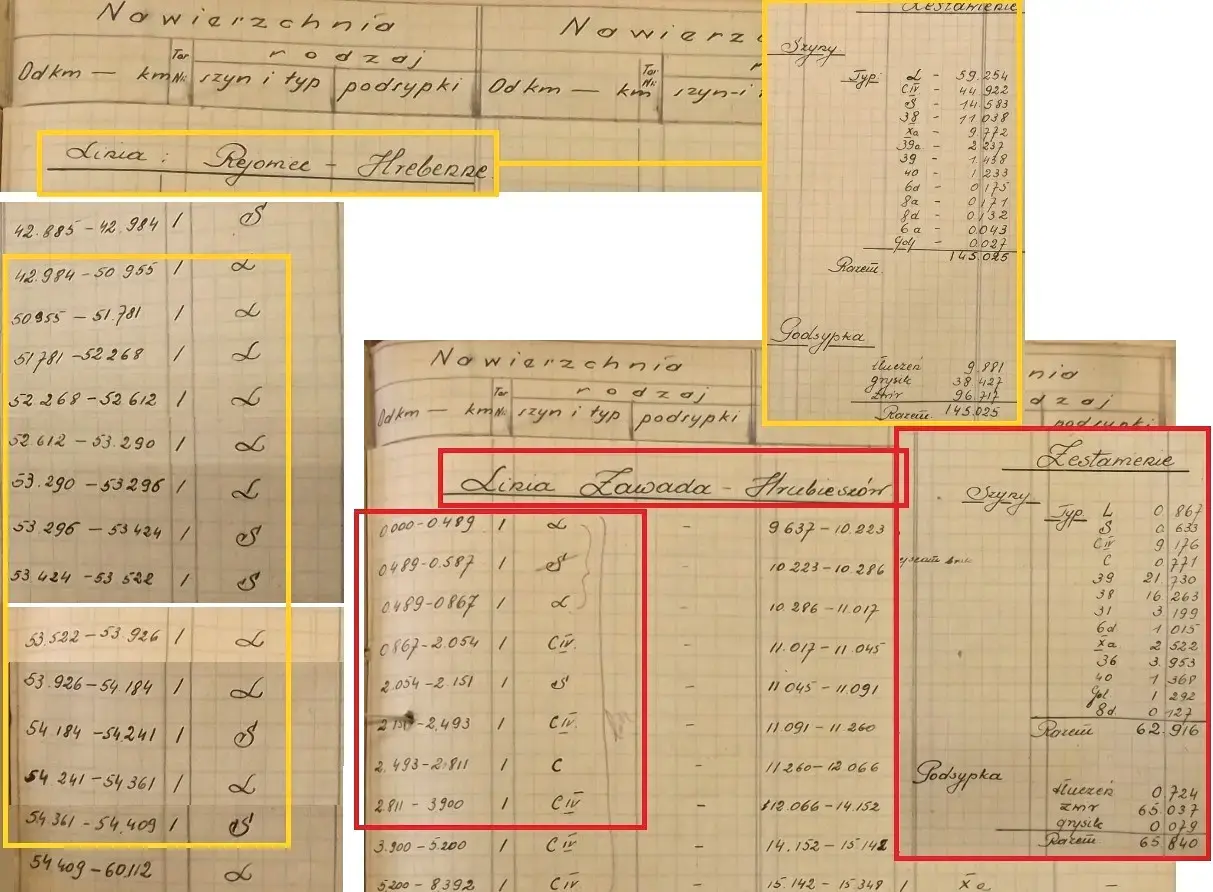 Nawierzchnia
Nawierz
Od km — km
Tor Nr.
rodzaj
szyn i typ
podsypki
Od km — km
Tor Nr.
szyn i
Linia : Rejowiec – Hrebenne
Zestawienie
Szyny
Typ: L – 59.254
CIV – 44 922
S – 14 583
38 – 11 038
Xa – 9.772
39a – 2 237
39 – 1.438
40 – 1 233
6d – 0 175
8a – 0 171
8d – 0.132
6a – 0.043
Gdj – 0.027
Razem. 145.025
Podsypka
tłuczeń 9.881
grysik 38 427
żwir 96.717
Razem. 145.025
42.885 – 42.984 1 S
42.984 – 50 955 1 L
50955 – 51.781 1 L
51781 – 52 268 1 L
52 268 – 52 612 1 L
52.612 – 53.290 1 L
53.290 – 53 296 1 L
53 296 – 53 424 1 S
53.424 – 53 522 1 S
53.522 – 53.926 1 L
53.926 – 54 184 1 L
54 184 – 54 241 1 S
54 241 – 54 361 1 L
54 361 – 54.409 1 S
54 409 – 60112 L
Nawierzchnia
nia
Od km — km
Tor Nr.
rodzaj
szyn i typ
podsypki
dzaj
podsypki
Linia Zawada – Hrubieszów
0000 – 0.489 1 L – 9 637 – 10.223
0489 – 0.587 1 S – 10 223 – 10 286
0489 – 0867 1 L – 10 286 – 11.017
0.867 – 2.054 1 CIV. 11.017 – 11 045
2.054 – 2.151 1 S – 11 045 – 11 091
2.151 – 2.493 1 CIV. – 11.091 – 11 260
2.493 – 2.811 1 C – 11 260 – 12 066
2.811 – 3900 1 CIV – 12.066 – 14.152
3.900 – 5.200 1 CIV – 14.152 – 15 142
5200 – 8392 1 CIV – 15.142 – 15 348 1 Xa –
Zestawienie
Szyny
Typ. L 0 867
S 0 633
CIV 9 176
C 0 771
39 21 730
38 16 263
31 3 199
6d 1 015
Xa 2 522
36 3.953
40 1 368
Gd. 1 292
8d 0 127
Razem 62.916
Podsypka
tłuczeń 0 724
żwir 65.037
grysik 0 079
Razem 65 840